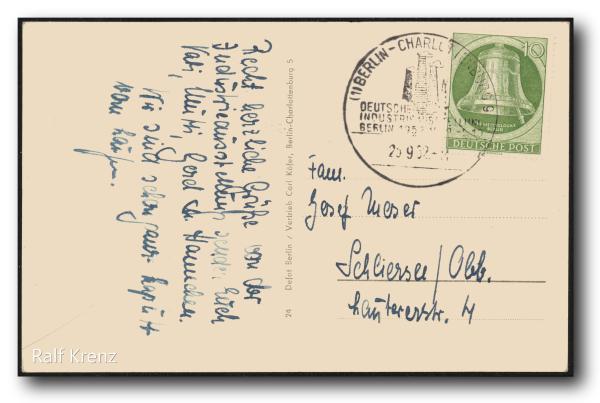 Recht herzliche Grüße von der
Industrieausstellung sendet euch
Vati, Mutti, Gerd u. Hannchen.
Wir sind schon ganz kaputt
vom laufen.
24 Defot Berlin / Vertrieb Carl Köfer, Berlin-Charlottenburg 5
(1) BERLIN-CHARLOTTENBURG 9
DEUTSCHE
INDUSTRIE
BERLIN 1952
10
DEUTSCHE POST
Fam.
Josef Moser
Schliersee/Obb.
str. 4
Ralf Krenz